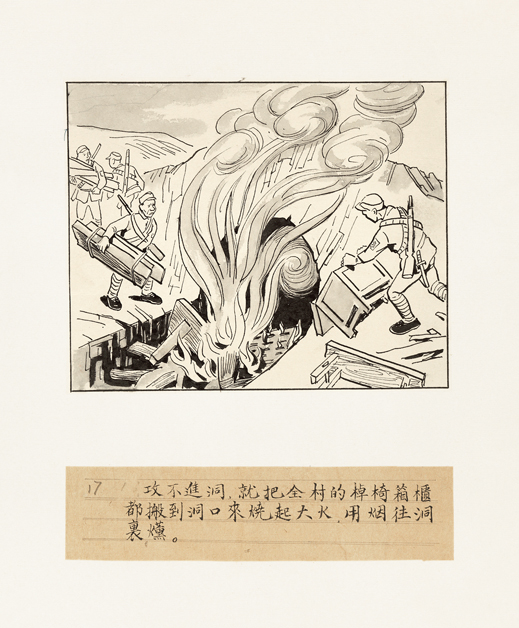 17 攻不進洞,就把全村的棹椅箱櫃
都搬到洞口來燒起大火.用烟往洞
裏燻。